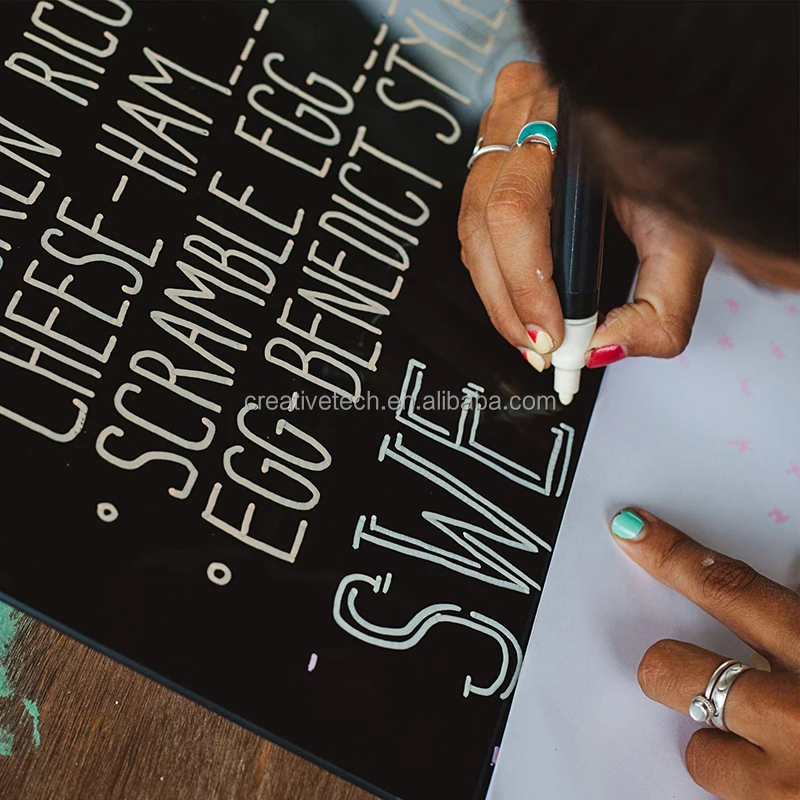 KEN RICO
CHEESE-HAM
• SCRAMBLE EGG
• EGG BENEDICT STYLE
SWE
creativetech.en.alibaba.com